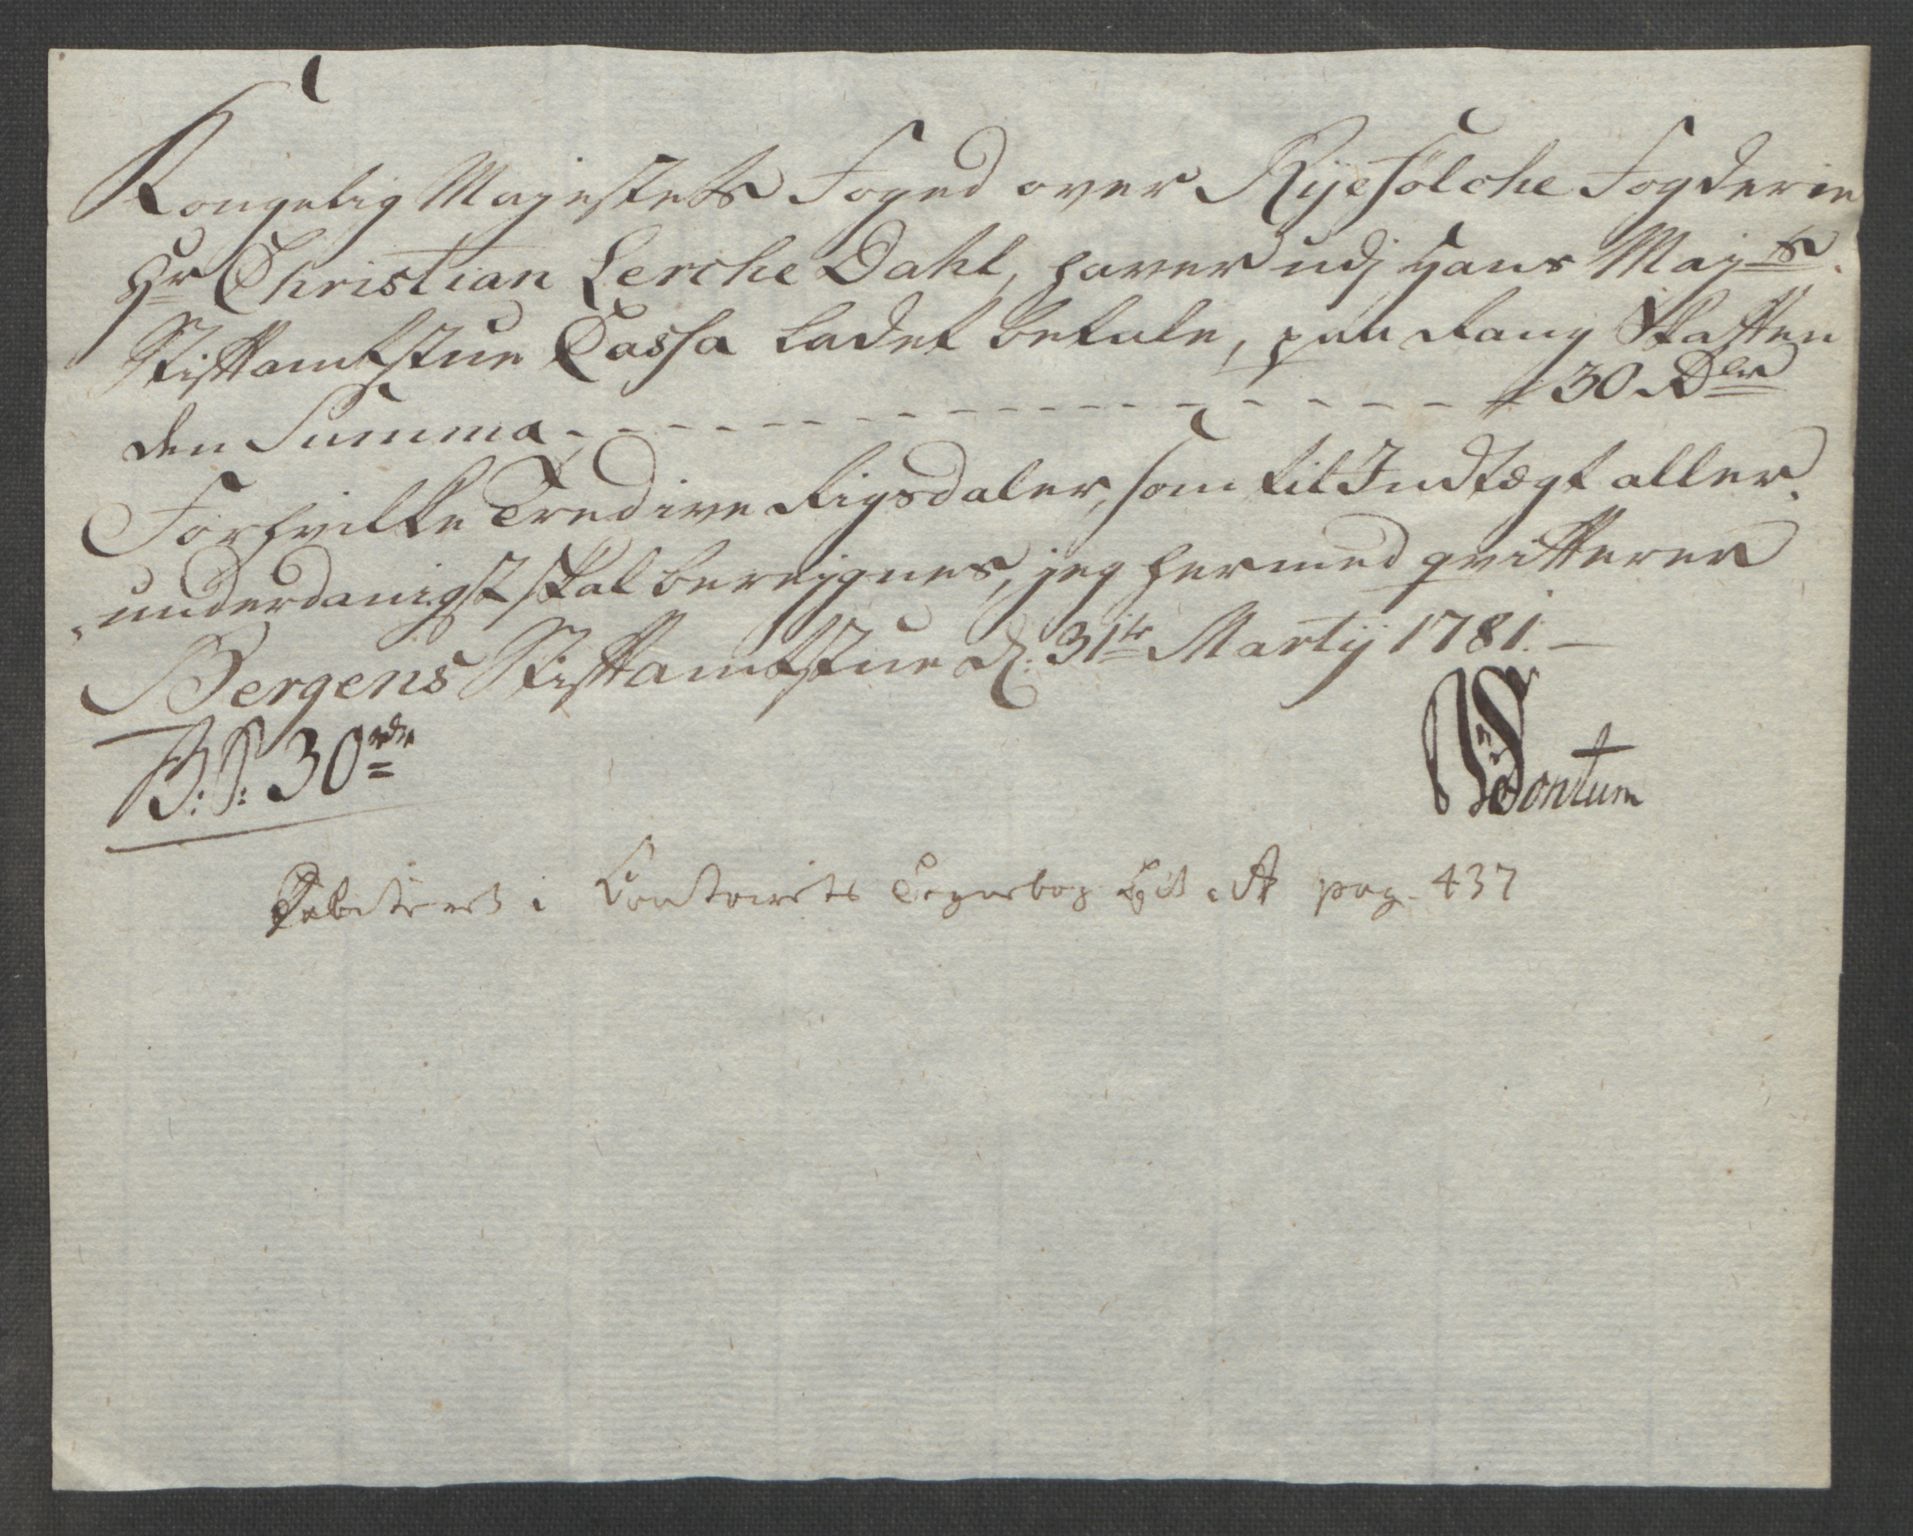 Kongelig Majestets Foged over Ryefölche Fogderie
Hr Christian Lerche Dahl, haver udj Hans Mayts.
Stiftamtstue Cassa ladet betale, paa Rang Skatten
den Summa - - - - - - - - - - - - - - - - - 30 Rdlr
Forhvilke Tredive Rigsdaler, som til Indtægt aller,
underdanigst skal beregnes, jeg hermed qvitterer
Bergens Stiftamtstue d: 31te Martij 1781. —
30 rdr
Fontum
Debiteret i Contoirets Tegnebog Lit. A pag. 437